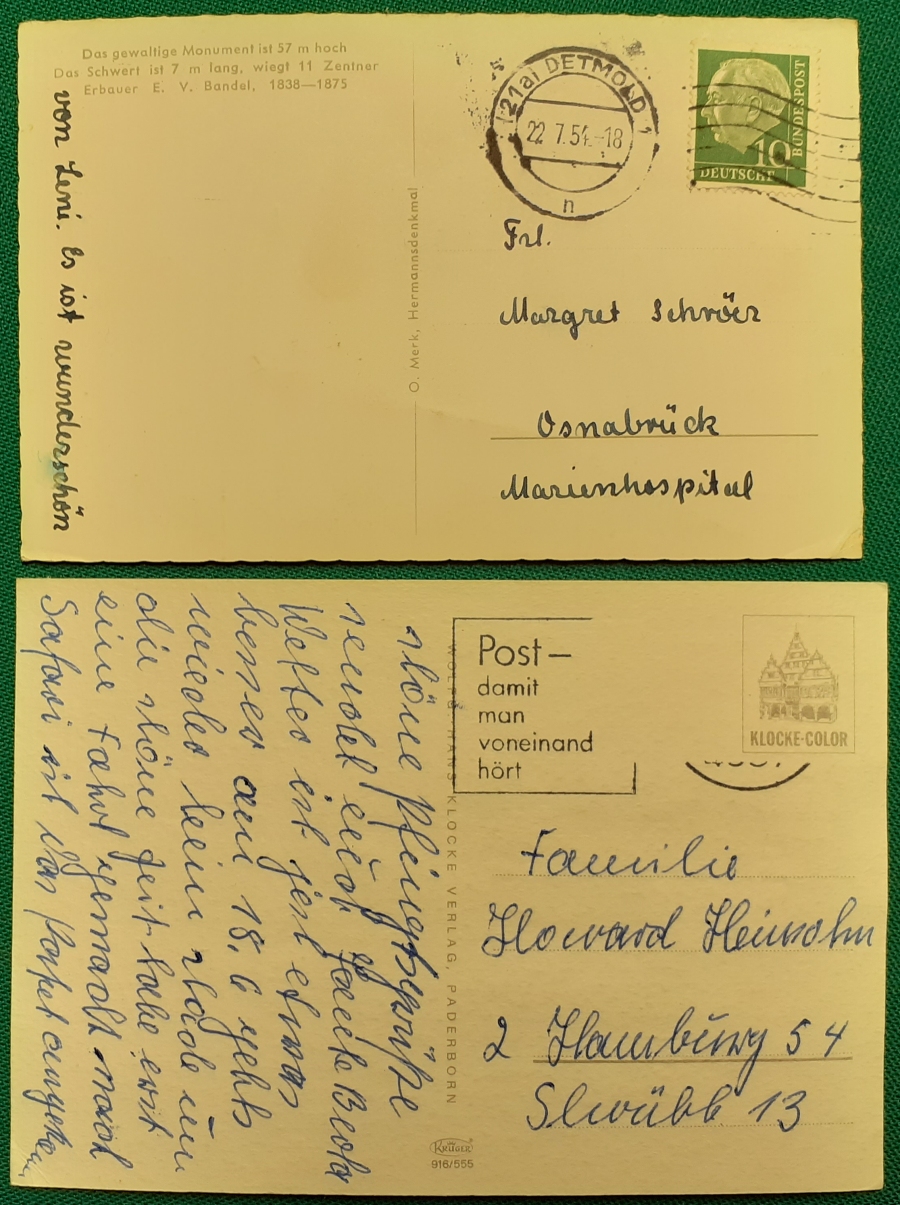 Das gewaltige Monument ist 57 m hoch
Das Schwert ist 7 m lang, wiegt 11 Zentner
Erbauer E. V. Bandel, 1838—1875
von Leni. Es ist wunderschön
O. Merk, Hermannsdenkmal
(21a) DETMOLD 1
22.7.54.-18
n
10
DEUTSCHE
BUNDESPOST
Frl.
Margret Schröer
Osnabrück
Marienhospital
schöne Pfingstgrüße
sendet euch Tante
Wetter ist jetzt etwas
besser am 18.6 gehts
wieder heim schade um
die schöne Zeit habe erst
eine Fahrt gemacht nach
Safari
WOLFG. HANS KLOCKE VERLAG, PADERBORN
KRÜGER
916/555
Post—
damit
man
voneinand
hört
KLOCKE-COLOR
Familie
Howard Heinsohn
2 Hamburg 54
13